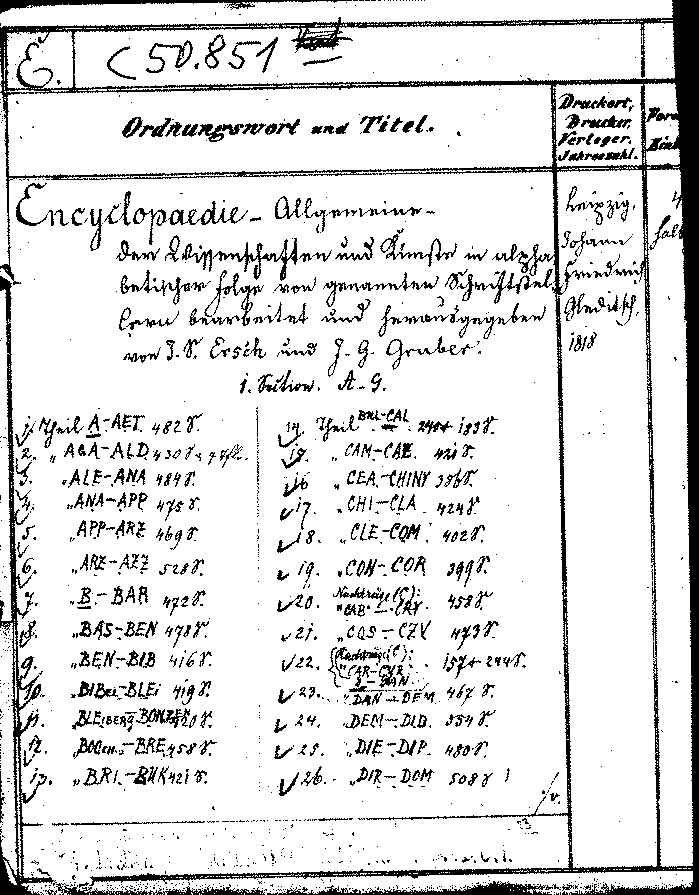 E. C 50.851
Ordnungswort und Titel.
Druckort,
Drucker,
Verleger,
Jahreszahl.
Encyclopaedie - Allgemeine -
der Wissenschaften und Künste in alpha
betischer Folge von genannten Schriftstel
lern bearbeitet und herausgegeben
von J. S. Ersch und J. G. Gruber.
1. Section. A-G.
Leipzig,
Johann
Friedrich
Gleditsch,
1818
1. Theil A-AET. 482 S.
2. " ACA-ALD 430 S.
3. " ALE-ANA 484 S.
4. " ANA-APP 475 S.
5. " APP-ARZ 469 S.
6. " ARZ-AZZ 528 S.
7. " B.-BAR 472 S.
8. " BAS-BEN 478 S.
9. " BEN-BIB 416 S.
10. " BIBel-BLEi 419 S.
11. " BLEiberg-BONZEN
12. " BRE 458 S.
13. " BRI-BUK 421 S.
14. Theil BUL-CAL 183 S.
15. " CAM-CAZ. 421 S.
16 " CEA-CHINY 386 S.
17. " CHI-CLA 424 S.
18. " CLE-COM. 402 S.
19. " CON-COR 399 S.
20. Nachträge (C):
" CAB - CAY 458 S.
21. " COS-CZY 473 S.
22. Nachträge (C):
" CAR-CYR 157 + 244 S.
D - DAN
23. " DAN-DEM 467 S.
24. DEM-DID. 354 S.
25. " DIE-DIP. 480 S.
26. " DIR-DOM 508 S
./v.